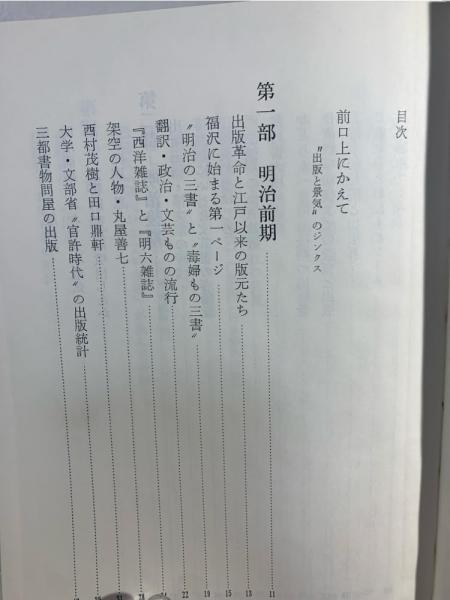 目次
前口上にかえて
〝出版と景気〟のジンクス
第一部　明治前期 11
出版革命と江戸以来の版元たち 13
福沢に始まる第一ページ 15
〝明治の三書〟と〝毒婦もの三書〟 19
翻訳・政治・文芸ものの流行 22
『西洋雑誌』と『明六雑誌』
架空の人物・丸屋善七
西村茂樹と田口鼎軒
大学・文部省〝官許時代〟の出版統計
三都書物問屋の出版